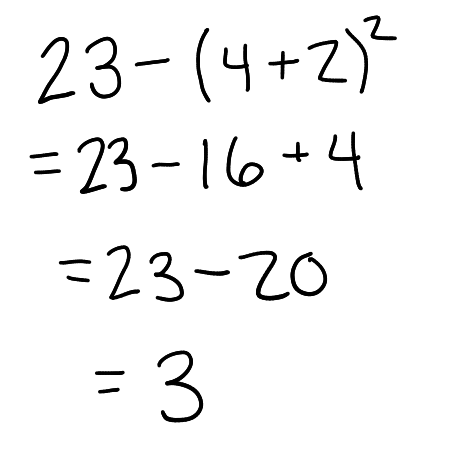 23 - (4 + 2)²
= 23 - 16 + 4
= 23 - 20
= 3